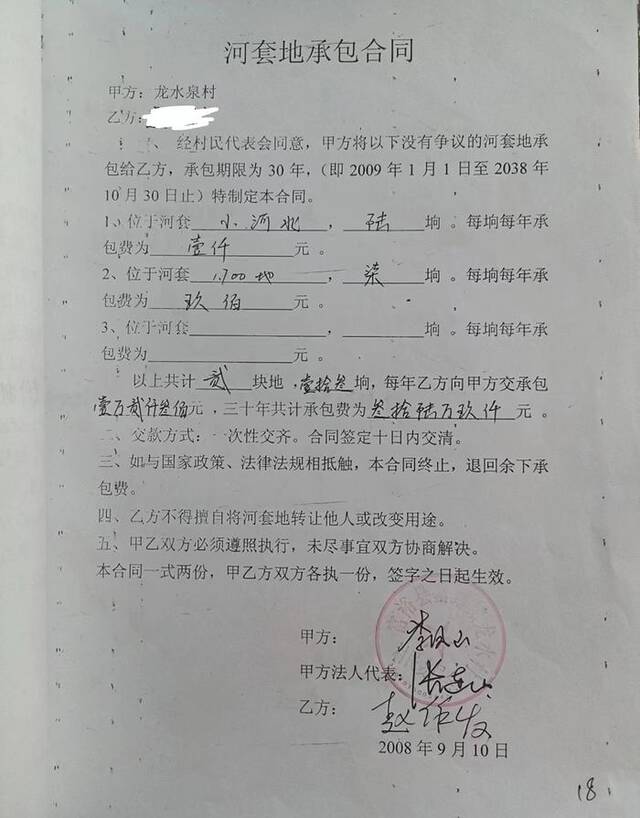 河套地承包合同
甲方：龙水泉村
乙方：
一、经村民代表会同意，甲方将以下没有争议的河套地承
包给乙方，承包期限为30年，（即2009年1月1日至2038年
10月30日止）特制定本合同。
1、位于河套小河北，陆垧。每垧每年承
包费为壹仟元。
2、位于河套1.700地，柒垧。每垧每年承
包费为玖佰元。
3、位于河套，垧。每垧每年承
包费为元。
以上共计贰块地，壹拾叁垧，每年乙方向甲方交承包
壹万贰仟叁佰元，三十年共计承包费为叁拾陆万玖仟元。
二、交款方式：一次性交齐。合同签定十日内交清。
三、如与国家政策、法律法规相抵触，本合同终止，退回余下承
包费。
四、乙方不得擅自将河套地转让他人或改变用途。
五、甲乙双方必须遵照执行，未尽事宜双方协商解决。
本合同一式两份，甲乙方双方各执一份，签字之日起生效。
甲方：
甲方法人代表：
乙方：赵作发
2008年9月10日
18